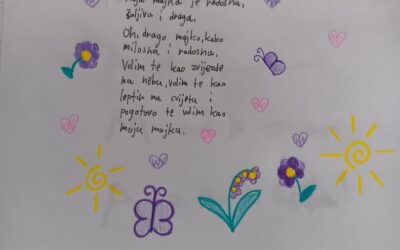 Moja majka je radosna,
šaljiva i draga.
Oh, drago majko, kako
milosna i radosna.
Volim te kao zvijezde
na nebu, volim te kao
leptir na cvijetu i
pogotovo te volim kao
moju majku.